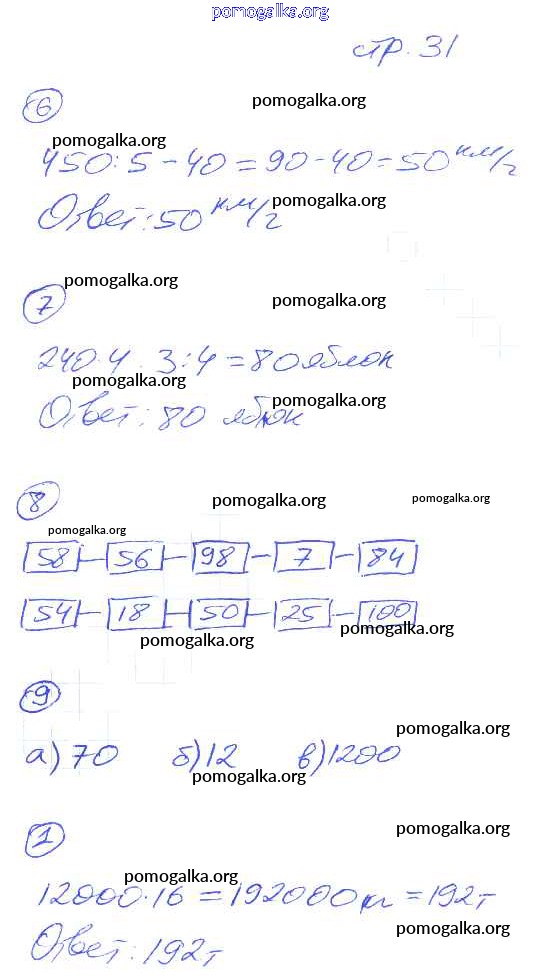 pomogalka.org
стр. 31
6
pomogalka.org
pomogalka.org
450:5-40=90-40=50 км/г
pomogalka.org
Ответ: 50 км/г
pomogalka.org
7
pomogalka.org
240·4·3:4=80 яблок
pomogalka.org
pomogalka.org
Ответ: 80 яблок
8
pomogalka.org
pomogalka.org
pomogalka.org
58-56-98-7-84
54-18-50-25-100
pomogalka.org
pomogalka.org
9
pomogalka.org
а) 70 б) 12 в) 1200
pomogalka.org
1
pomogalka.org
pomogalka.org
12000·16=192000 кг=192т
pomogalka.org
Ответ: 192т